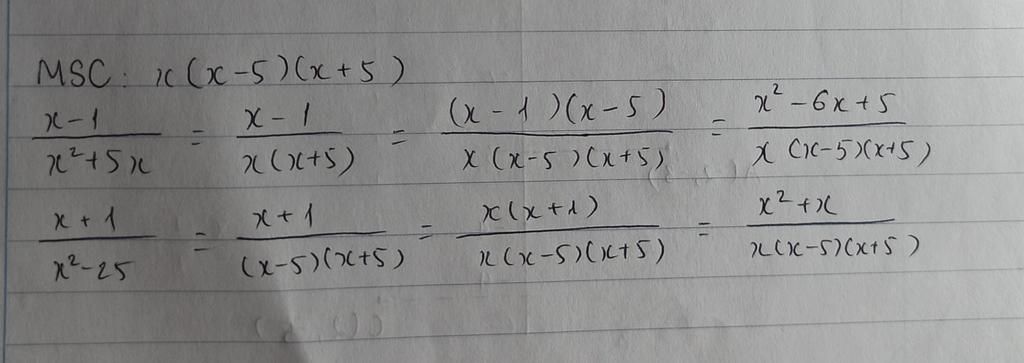 MSC: x(x-5)(x+5)
(x-1)/(x²+5x) = (x-1)/(x(x+5)) = ((x-1)(x-5))/(x(x-5)(x+5)) = (x²-6x+5)/(x(x-5)(x+5))
(x+1)/(x²-25) = (x+1)/((x-5)(x+5)) = (x(x+1))/(x(x-5)(x+5)) = (x²+x)/(x(x-5)(x+5))